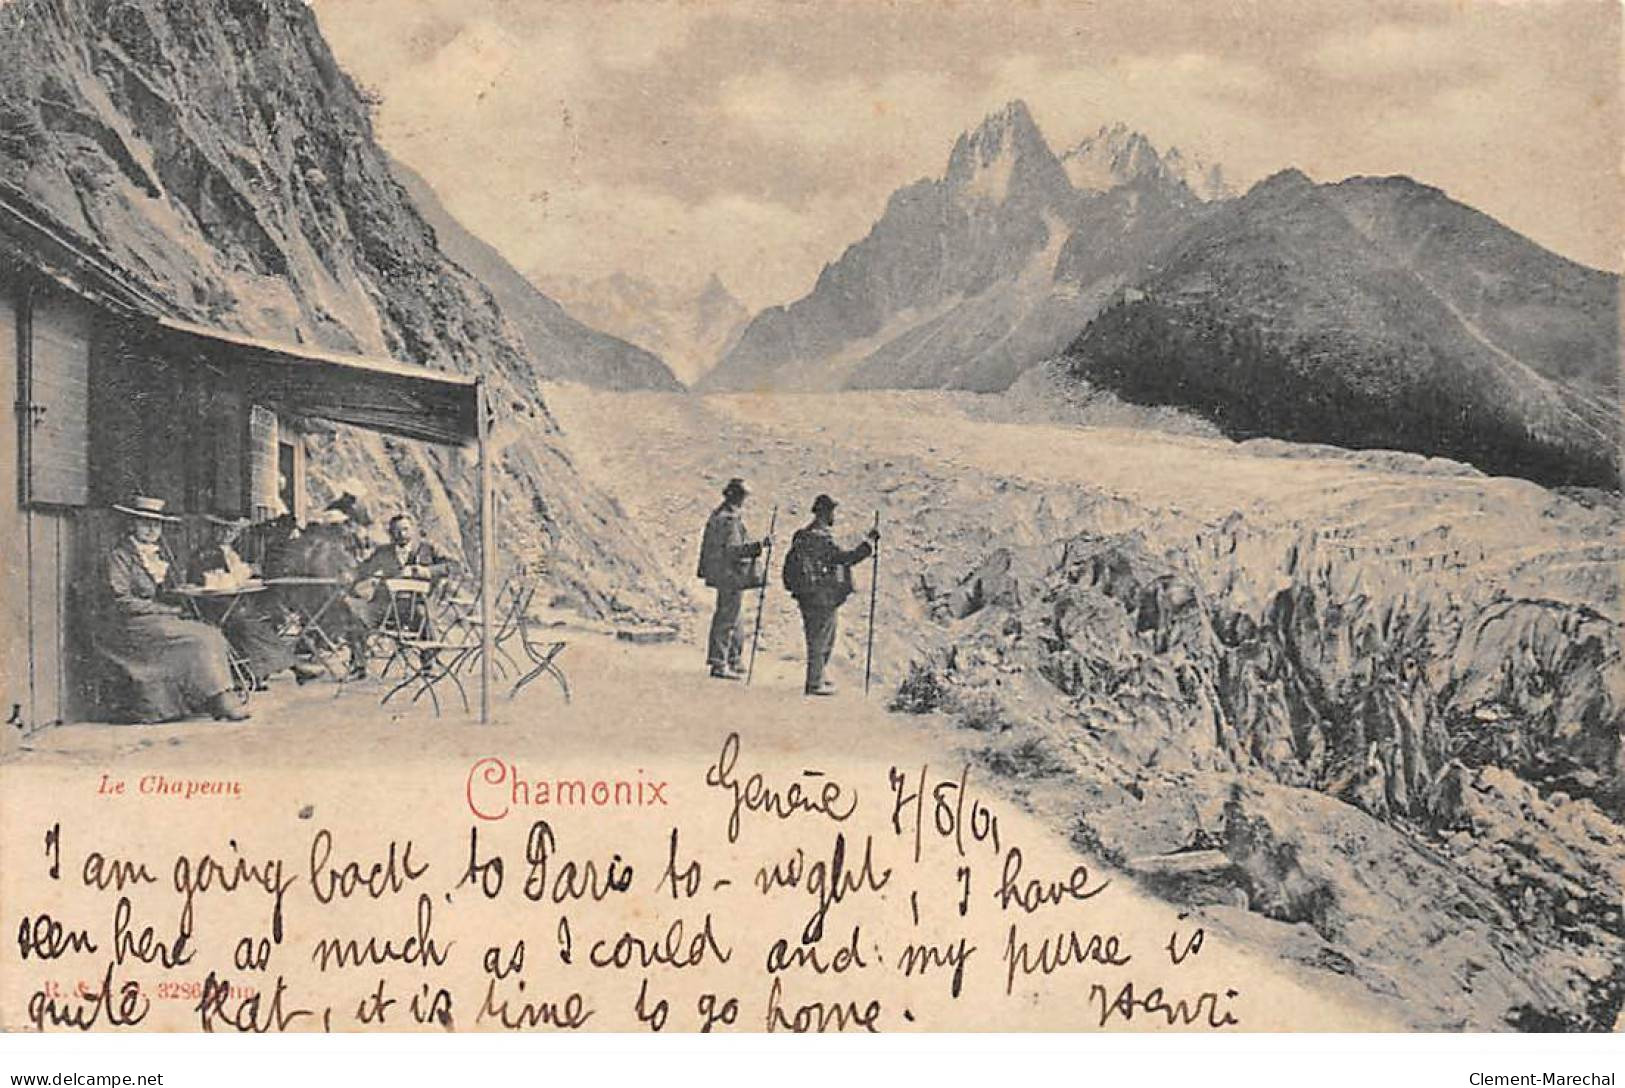 Le Chapeau
Chamonix
Genève 7/8/01
I am going back to Paris to-night, I have
seen here as much as I could and my purse is
quite flat, it is time to go home.
Henri
R. & 3286
www.delcampe.net
Clement-Marechal